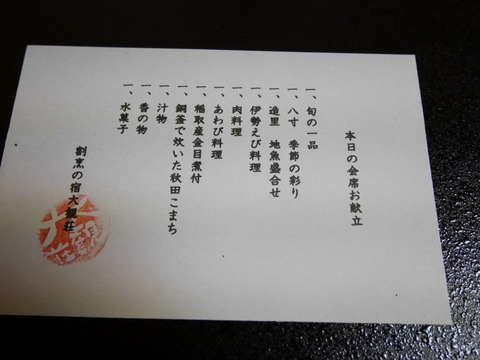 本日の会席お献立
一、旬の一品
一、八寸 季節の彩り
一、造里 地魚盛合せ
一、伊勢えび料理
一、肉料理
一、あわび料理
一、稲取産金目煮付
一、銅釜で炊いた秋田こまち
一、汁物
一、香の物
一、水菓子
割烹の宿大観荘